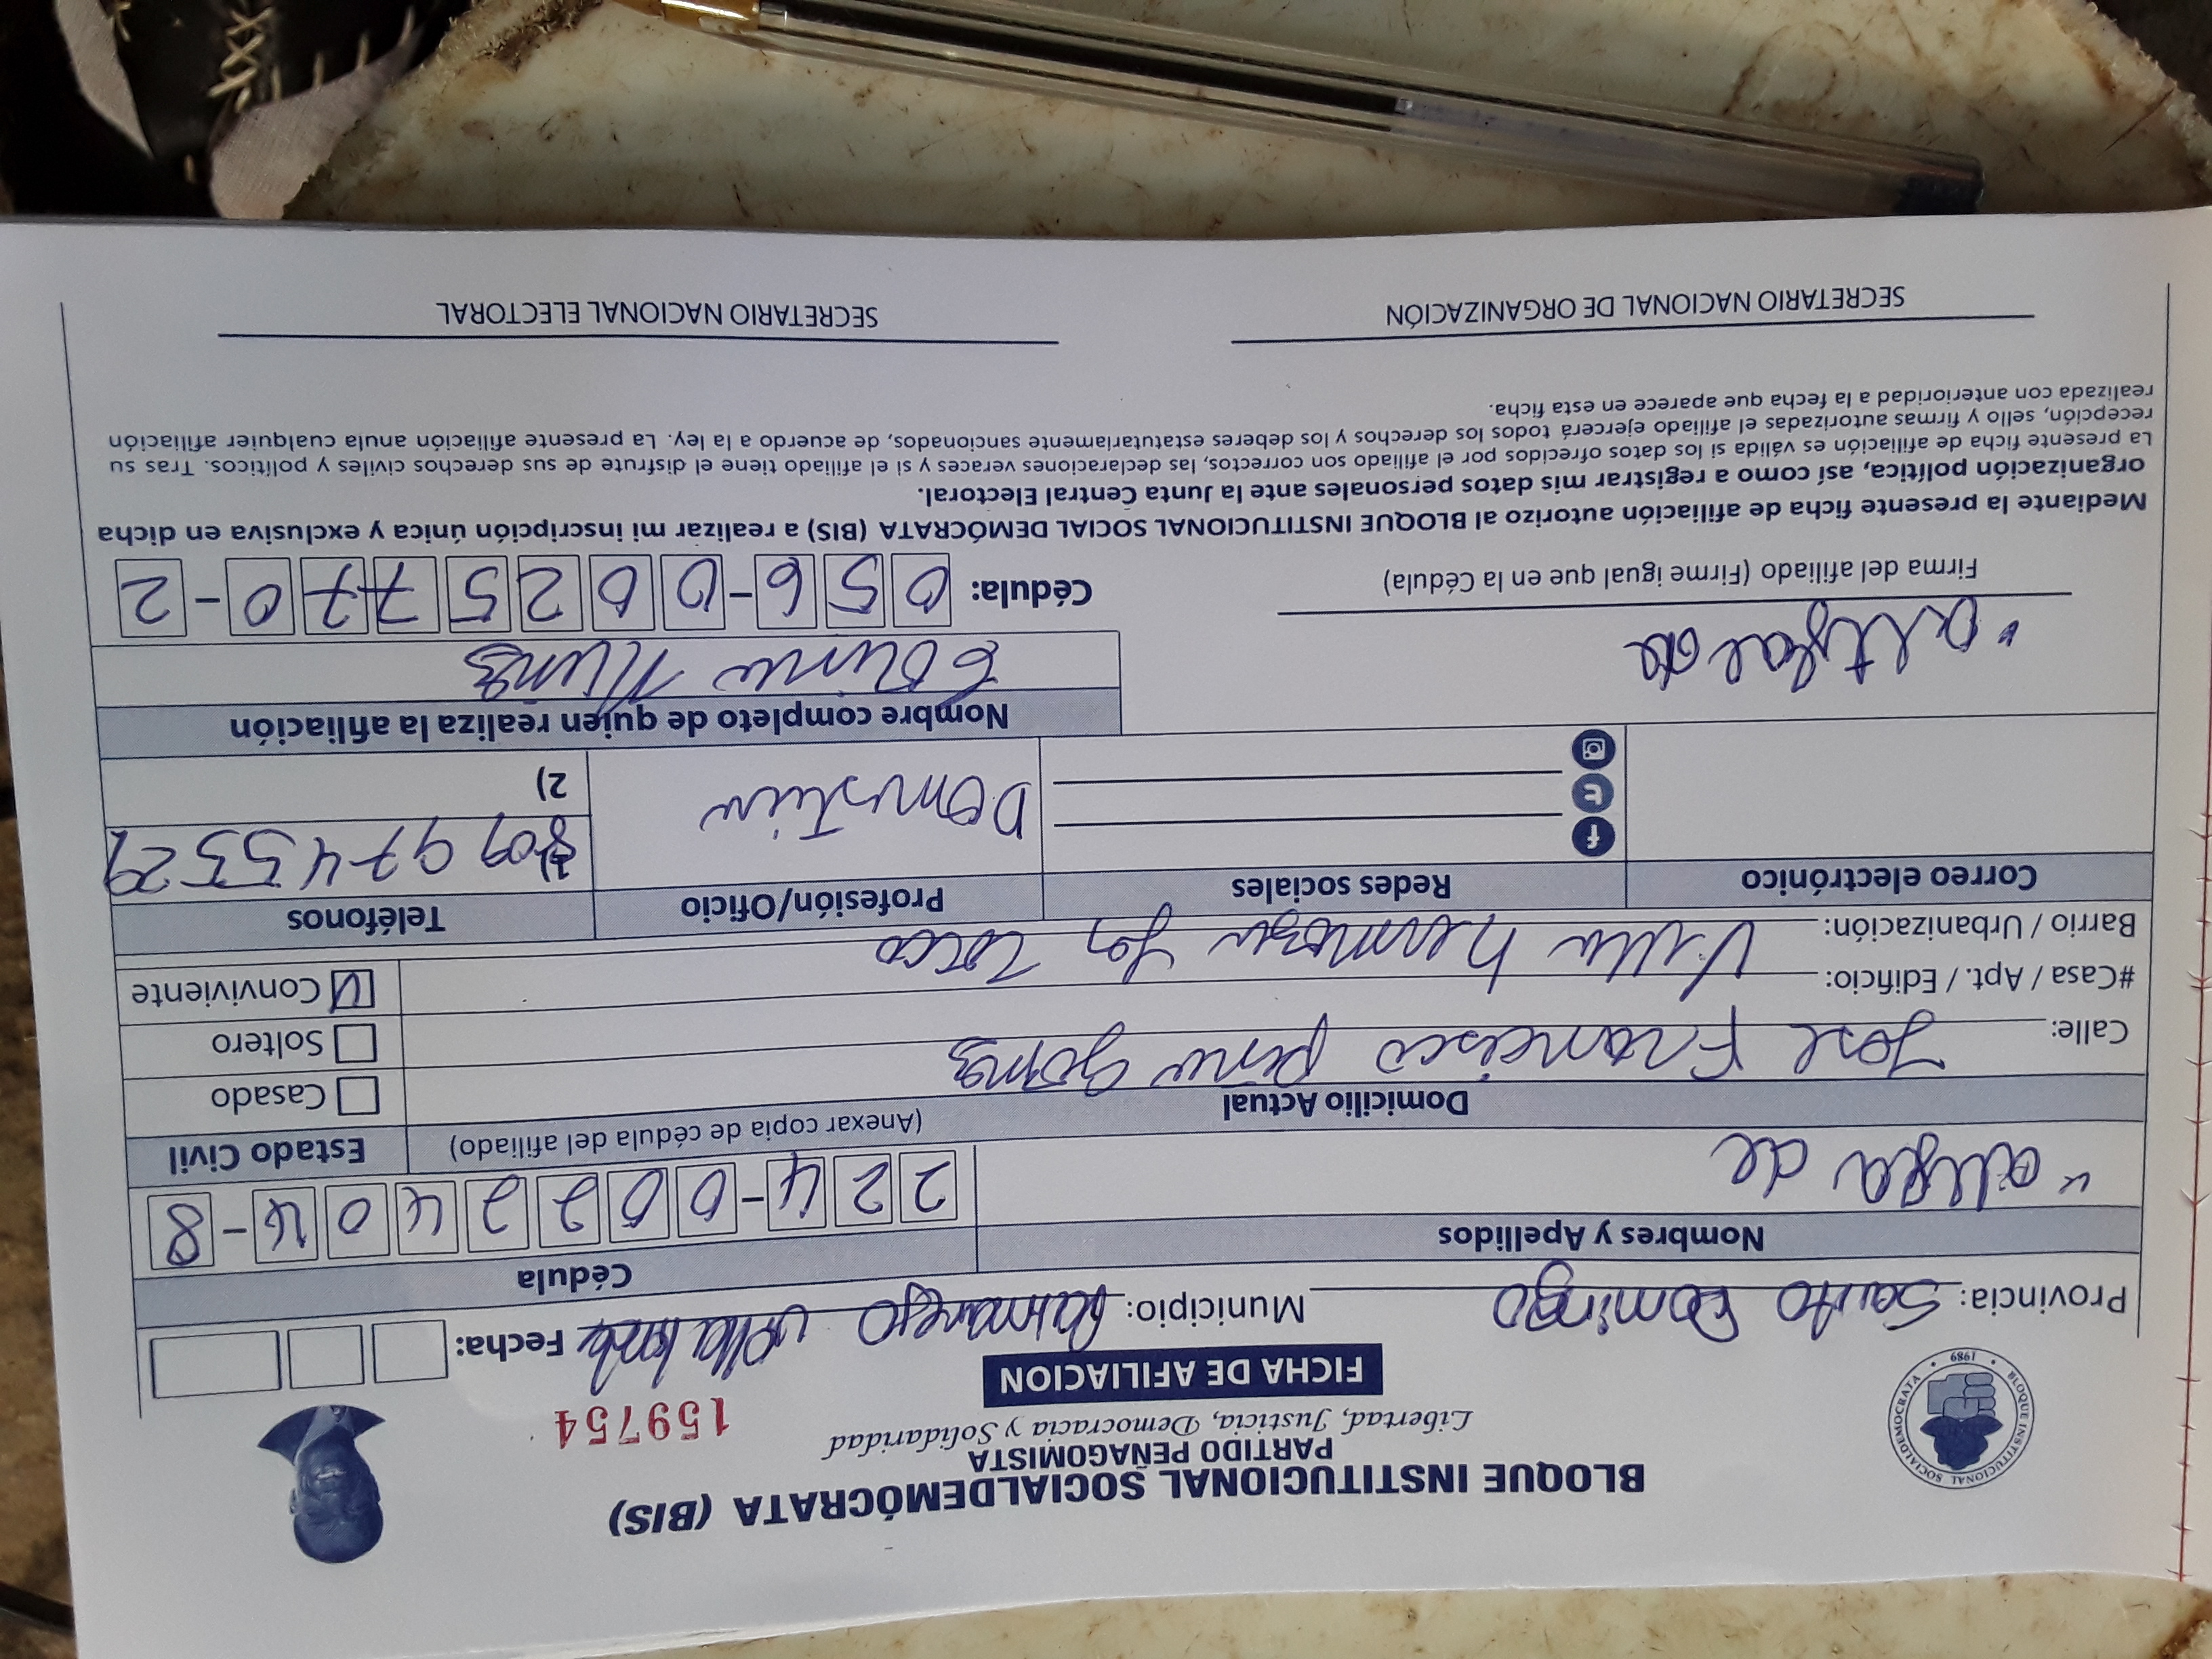 BLOQUE INSTITUCIONAL SOCIALDEMÓCRATA (BIS)
PARTIDO PEÑAGOMISTA
Libertad, Justicia, Democracia y Solidaridad
159754
BLOQUE INSTITUCIONAL SOCIALDEMOCRATA • 1989 •
FICHA DE AFILIACION
Provincia: Santo Domingo Municipio: Palmarejo Villa Fecha:
Nombres y Apellidos Cédula
224-0022404-8
Domicilio Actual (Anexar copia de cédula del afiliado) Estado Civil
Calle: Jose Francisco peña Gomez
Casado
#Casa / Apt. / Edificio:
Soltero
Barrio / Urbanización: Villa hermoza
Conviviente
Correo electrónico Redes sociales Profesión/Oficio Teléfonos
1) 809 974 5329
2)
Nombre completo de quien realiza la afiliación
Cédula: 056-0025770-2
Firma del afiliado (Firme igual que en la Cédula)
Mediante la presente ficha de afiliación autorizo al BLOQUE INSTITUCIONAL SOCIAL DEMÓCRATA (BIS) a realizar mi inscripción única y exclusiva en dicha
organización política, así como a registrar mis datos personales ante la Junta Central Electoral.
La presente ficha de afiliación es válida si los datos ofrecidos por el afiliado son correctos, las declaraciones veraces y si el afiliado tiene el disfrute de sus derechos civiles y políticos. Tras su
recepción, sello y firmas autorizadas el afiliado ejercerá todos los derechos y los deberes estatutariamente sancionados, de acuerdo a la ley. La presente afiliación anula cualquier afiliación
realizada con anterioridad a la fecha que aparece en esta ficha.
SECRETARIO NACIONAL DE ORGANIZACIÓN SECRETARIO NACIONAL ELECTORAL